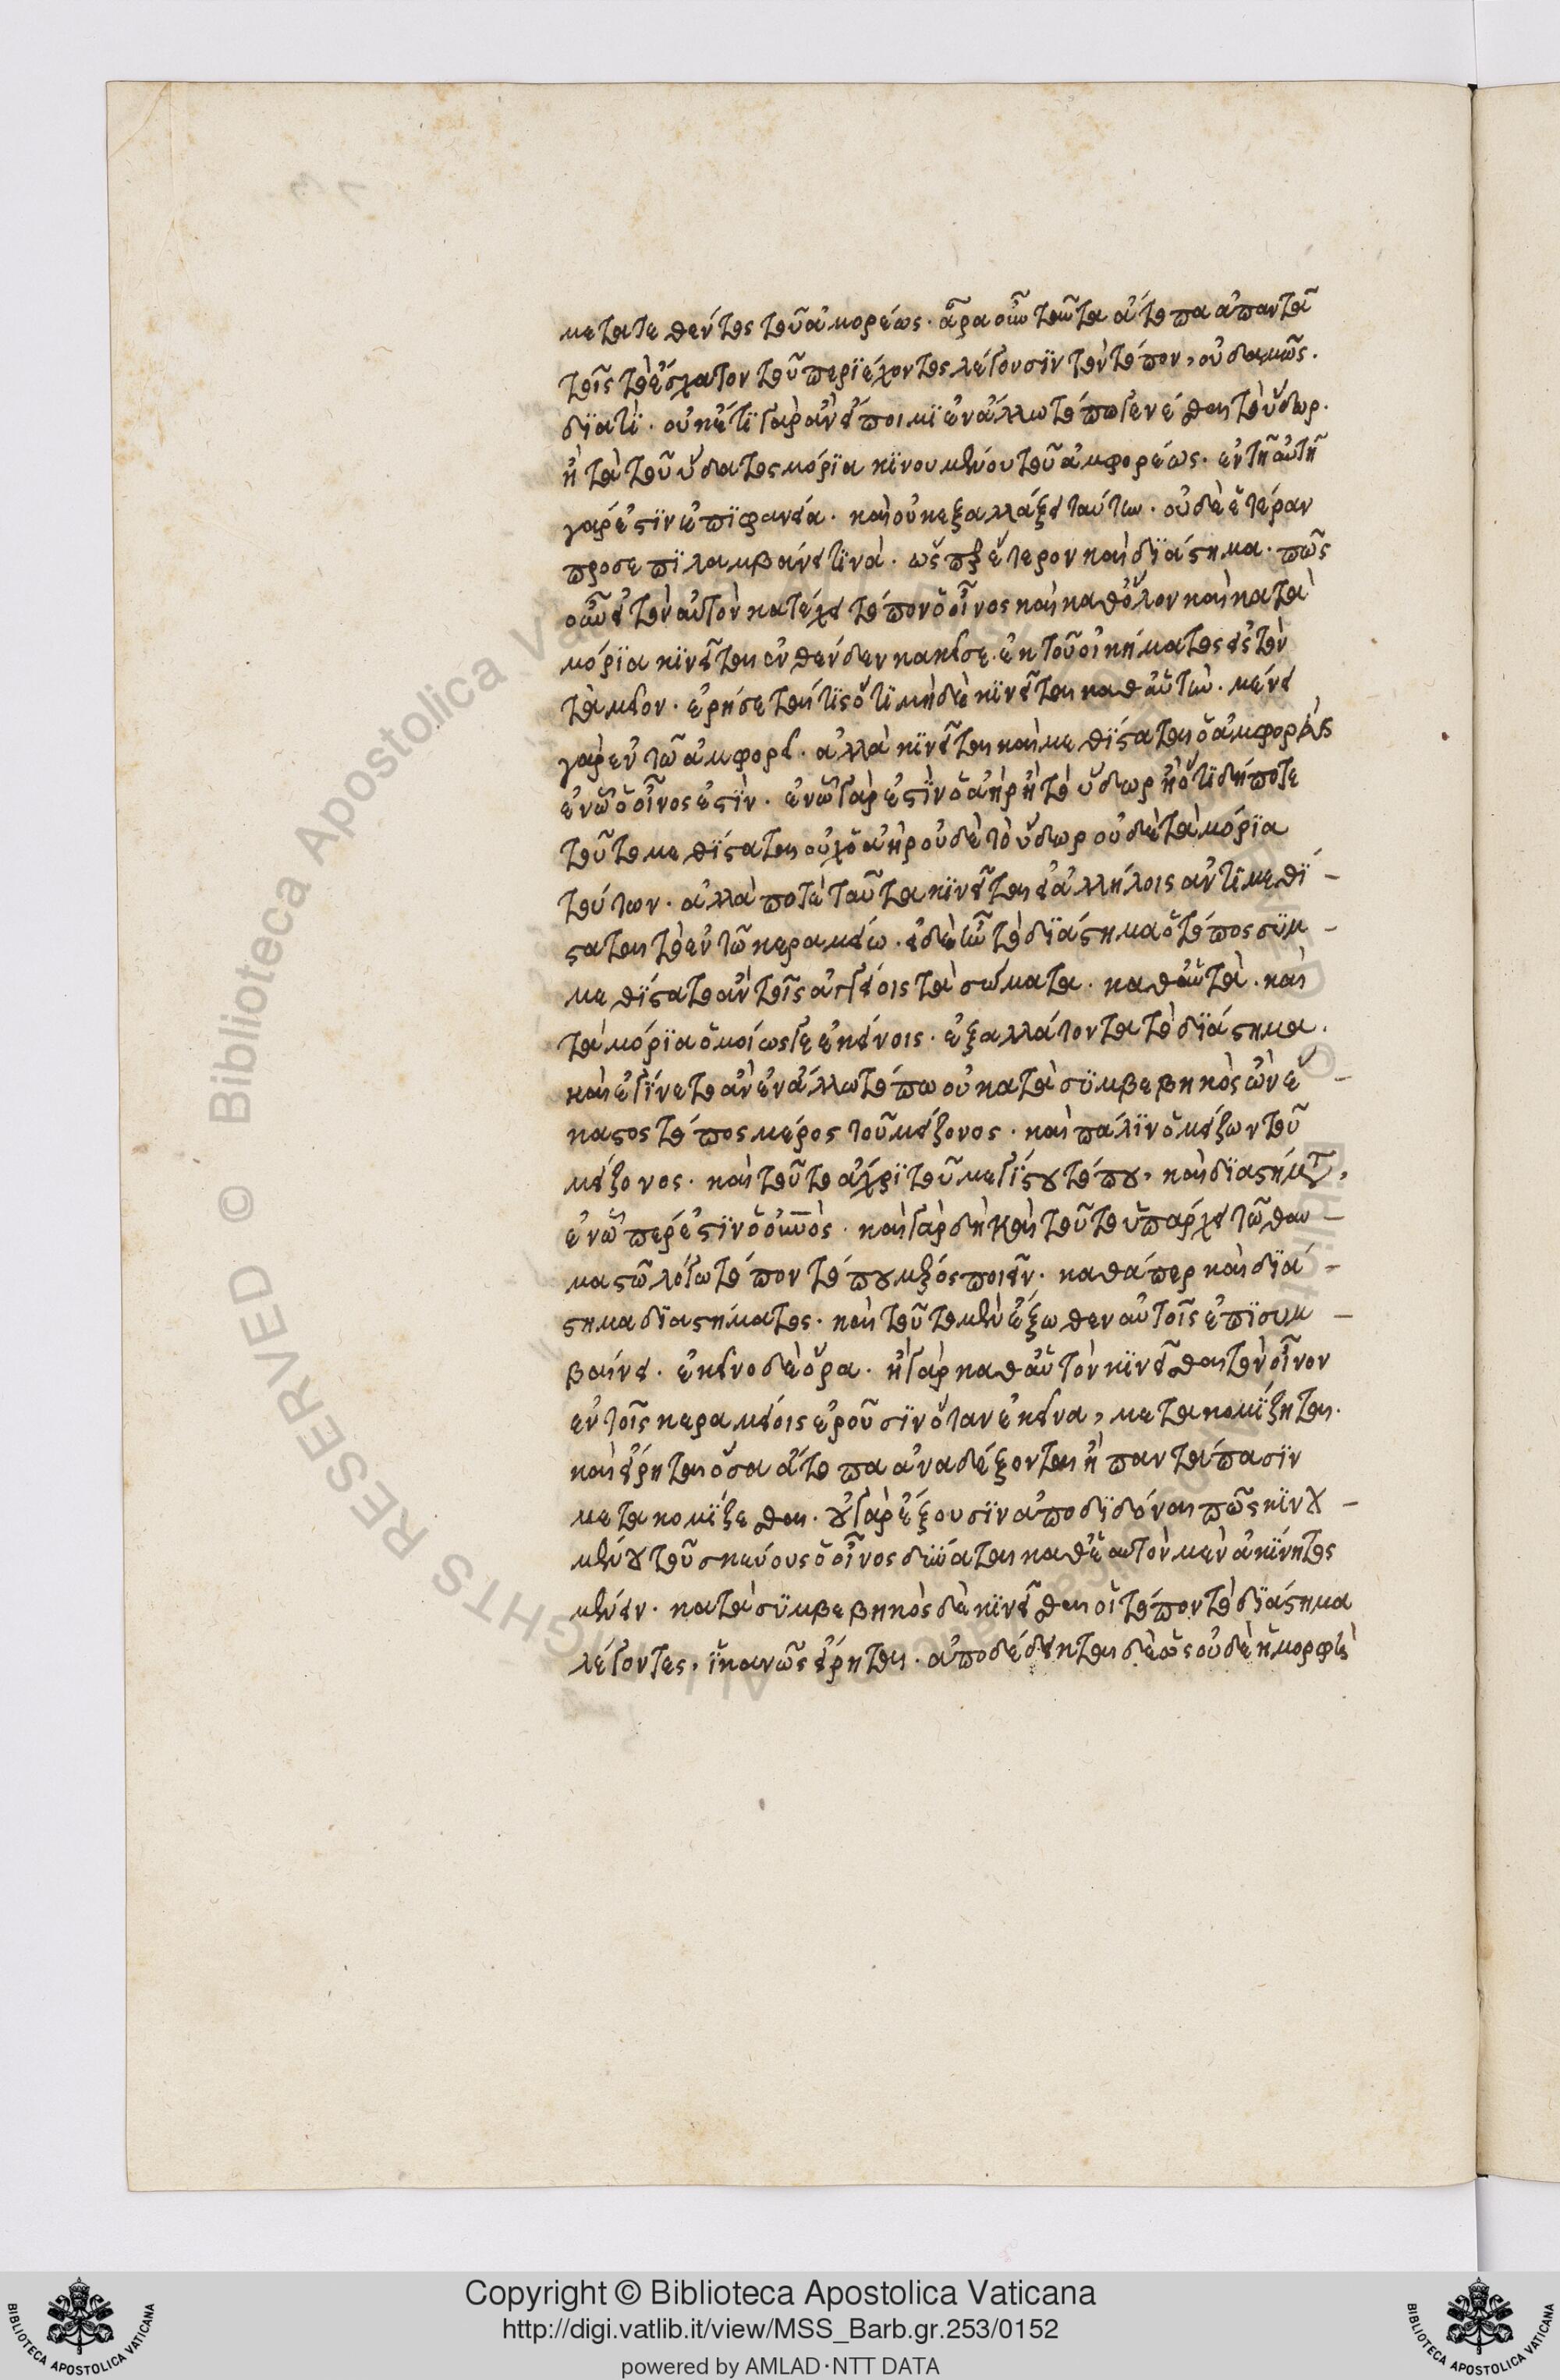 μετατεθέντος τοῦ ἀμορέως. ἆρα οὖν ταῦτα ἄτοπα ἀπαντᾶ
τοῖς τὸ ἔσχατον τοῦ περιέχοντος λέγουσιν τὸν τόπον, οὐδαμῶς.
διατί. οὐκέτι γὰρ ἂν εἴποιμι ἐν ἄλλω τόπω γενέσθαι τὸ ὕδωρ.
ἢ τὰ τοῦ ὕδατος μόρια κινουμένου τοῦ ἀμφορέως. ἐν τῆ αὐτῆ
γάρ ἐστιν ἐπιφανεία. καὶ οὐκ ἐξαλλάξει ταύτην. οὐδὲ ἑτέραν
προσεπιλαμβάνει τινὰ. ὥσπερ ἕτερον καὶ διάστημα. πῶς
οὖν εἰ τὸν αὐτὸν κατέχει τόπον ὁ οἶνος καὶ καθ ὅλον καὶ κατὰ
μόρια κινεῖται ἐνθένδεν κακεῖσε. ἐκ τοῦ οἰκήματος εἰς τὸν
ταμεῖον. ἐρήσεται τίς ὅτι μηδὲ κινεῖται καθ αὑτὼ. μένει
γὰρ ἐν τῶ ἀμφορεῖ. ἀλλὰ κινεῖται καὶ μεθίσταται ὁ ἀμφορεὺς
ἐν ὧ ὁ οἶνος ἐστὶν. ἐν ὧ γάρ ἐστιν ὁ ἀὴρ ἢ τὸ ὕδωρ ἢ ὅτι δήποτε
τοῦτο μεθίσταται οὐχ ὁ ἀὴρ οὐδὲ τὸ ὕδωρ οὐδὲ τὰ μόρια
τούτων. ἀλλὰ ποτὲ ταῦτα κινεῖται εἰ ἀλλήλοις ἀντιμεθί-
σταται τὸ ἐν τῶ κεραμείω. εἰ δὲ ἦν τὸ διάστημα ὁ τόπος συμ-
μεθίστατο ἂν τοῖς ἀγγείοις τὰ σώματα. καθ αὑτὰ. καὶ
τὰ μόρια ὁμοίως γε ἐκείνοις. ἐξαλλάτοντα τὸ διάστημα.
καὶ ἐγίνετο ἂν ἐν ἄλλω τόπω οὐ κατὰ συμβεβηκὸς ὢν ἕ-
καστος τόπος μέρος τοῦ μείζονος. καὶ πάλιν ὁ μείζων τοῦ
μείζονος. καὶ τοῦτο ἄχρι τοῦ μεγίστου τόπου, καὶ διαστήματος,
ἐν ὧπερ ἐστὶν ὁ οὐνὸς. καὶ γὰρ δὴ καὶ τοῦτο ὑπάρχει τῶ θαυ-
μαστῶ λόγω τόπον τόπου μέρος ποιεῖν. καθάπερ καὶ διά-
στημα διαστήματος. καὶ τοῦτο μὲν ἔξωθεν αὐτοῖς ἐπισυμ-
βαίνει. ἐκεῖνο δὲ ὅρα. ἢ γὰρ καθ αὑτὸν κινεῖσθαι τὸν οἶνον
ἐν τοῖς κεραμείοις ἐροῦσιν ὅταν ἐκεῖνα, μετακομίζηται.
καὶ εἴρηται ὅσα ἄτοπα ἀναδέξονται ἢ πανταπάσιν
μετακομίζεσθαι. οὐ γὰρ ἕξουσιν ἀποδιδόναι πῶς κινου-
μένου τοῦ σκεύους ὁ οἶνος δύναται καθ ἑαυτὸν μὲν ἀκίνητος
μένειν. κατὰ συμβεβηκὸς δὲ κινεῖσθαι οἱ τόπον τὸ διάστημα
λέγοντες. ἱκανῶς εἴρηται. ἀποδέδεικται δὲ ὡς οὐδὲ ἡ μορφὴ
Copyright © Biblioteca Apostolica Vaticana
http://digi.vatlib.it/view/MSS_Barb.gr.253/0152
powered by AMLAD·NTT DATA
BIBLIOTECA APOSTOLICA VATICANA
BIBLIOTECA APOSTOLICA VATICANA